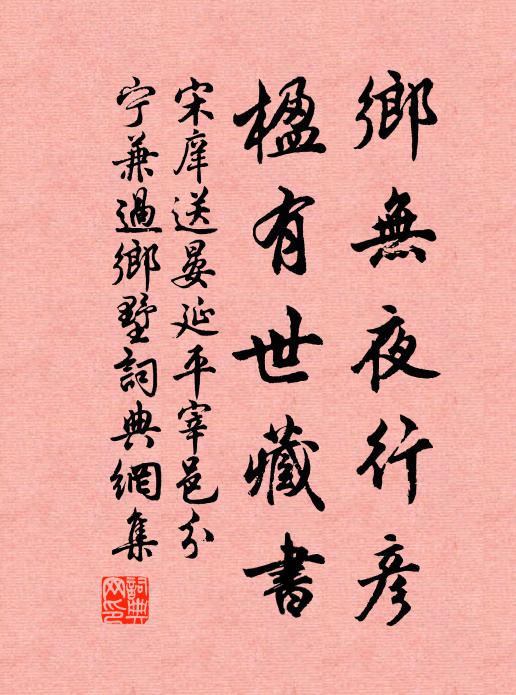 鄉無夜行彥
楹有世藏書
宋庠送晏延平宰邑分
宁兼過鄉墅詞典網集
詞典網印